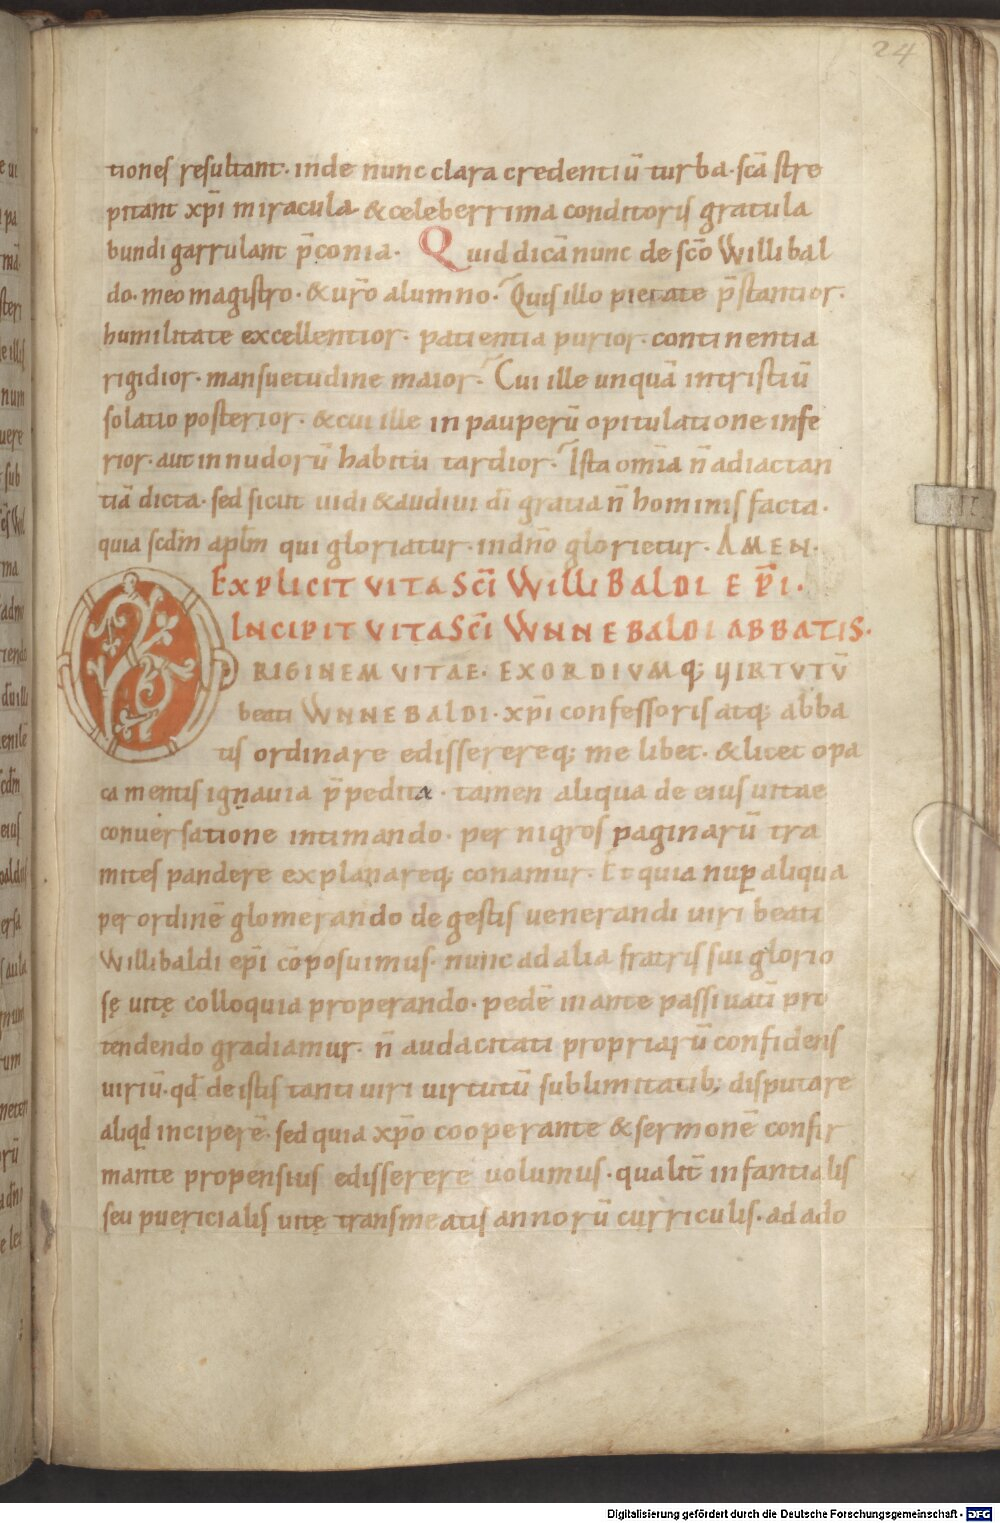 24
tiones resultant. inde nunc clara credentiū turba. scā stre
pitant xp̄i miracula. & celeberrima conditoris gratula
bundi garrulant p̄conia. Quid dicā nunc de sc̄o Willibal
do. meo magistro. & ur̄o alumno. Quis illo pietate p̄stantior.
humilitate excellentior. patientia purior. continentia
rigidior. mansuetudine maior. Cui ille unquā in tristiū
solatio posterior. & cui ille in pauperū opitulatione infe
rior. aut in nudorū habitu tardior. Ista om̄ia n̄ ad iactan
tiā dicta. sed sicut uidi & audiui dī gratia n̄ hominis facta.
quia scdm̄ apl̄m qui gloriatur. in dn̄o glorietur. AMEN.
EXPLICIT VITA SCĪ WILLIBALDI EP̄I.
INCIPIT VITA SCĪ WNNEBALDI ABBATIS.
ORIGINEM VITAE. EXORDIVMq; VIRTVTŪ
beati WNNEBALDI. xp̄i confessoris atq; abba
tis ordinare edisserereq; me libet. & licet opa
ca mentis ignauia p̄pedita. tamen aliqua de eius uitae
conuersatione intimando. per nigros paginarū tra
mites pandere explanareq; conamur. Et quia nuꝑ aliqua
per ordinē glomerando de gestis uenerandi uiri beati
Willibaldi ep̄i cōposuimus. nunc ad alia fratris sui glorio
sę uitę colloquia properando. pedē in ante passiuatī pro
tendendo gradiamur. n̄ audacitati propriarū confidens
uiriū. qd̄ de istis tanti uiri uirtutū sublimitatib; disputare
aliqd incipere. sed quia xp̄o cooperante & sermonē confir
mante propensius edisserere uolumus. qualit̄ infantialis
seu puericialis uitę transmeatis annorū curriculis. ad ado
Digitalisierung gefördert durch die Deutsche Forschungsgemeinschaft - DFG